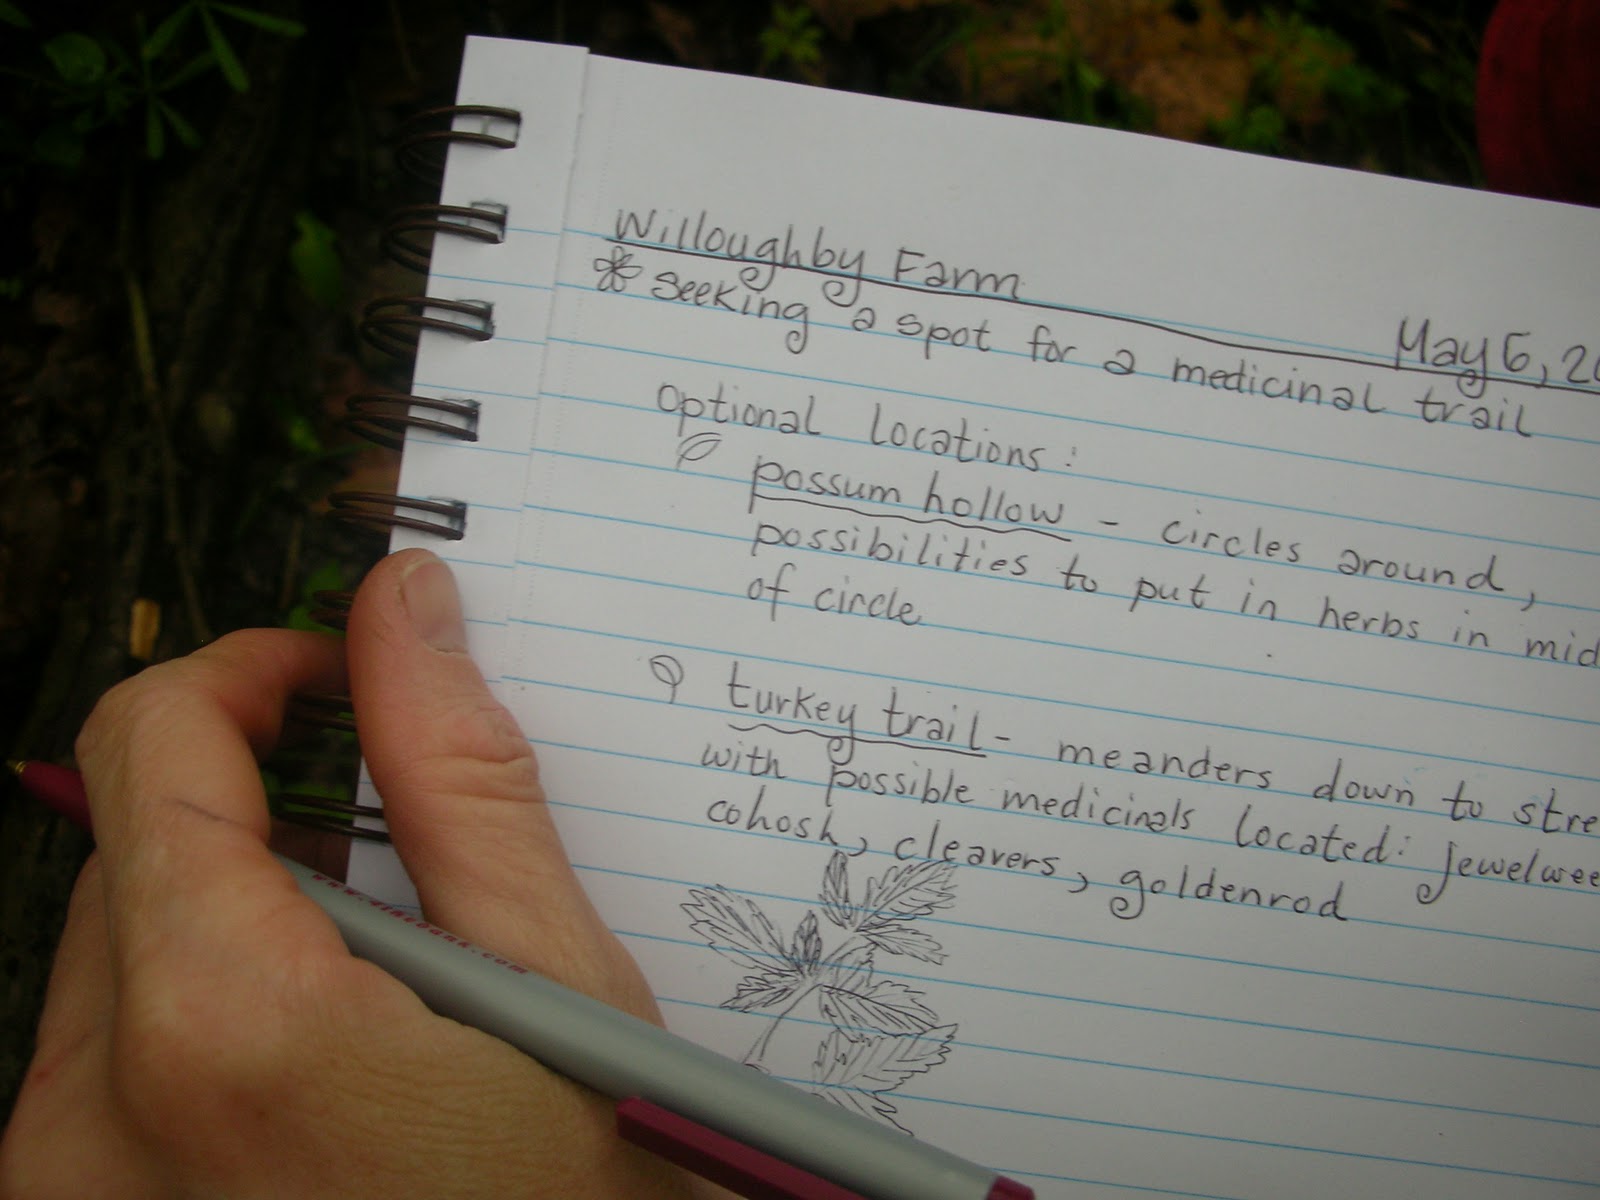 Willoughby Farm
May 6, 20
seeking a spot for a medicinal trail
optional locations:
possum hollow - circles around,
possibilities to put in herbs in mid
of circle
turkey trail - meanders down to stre
with possible medicinals located: jewelwee
cohosh, cleavers, goldenrod